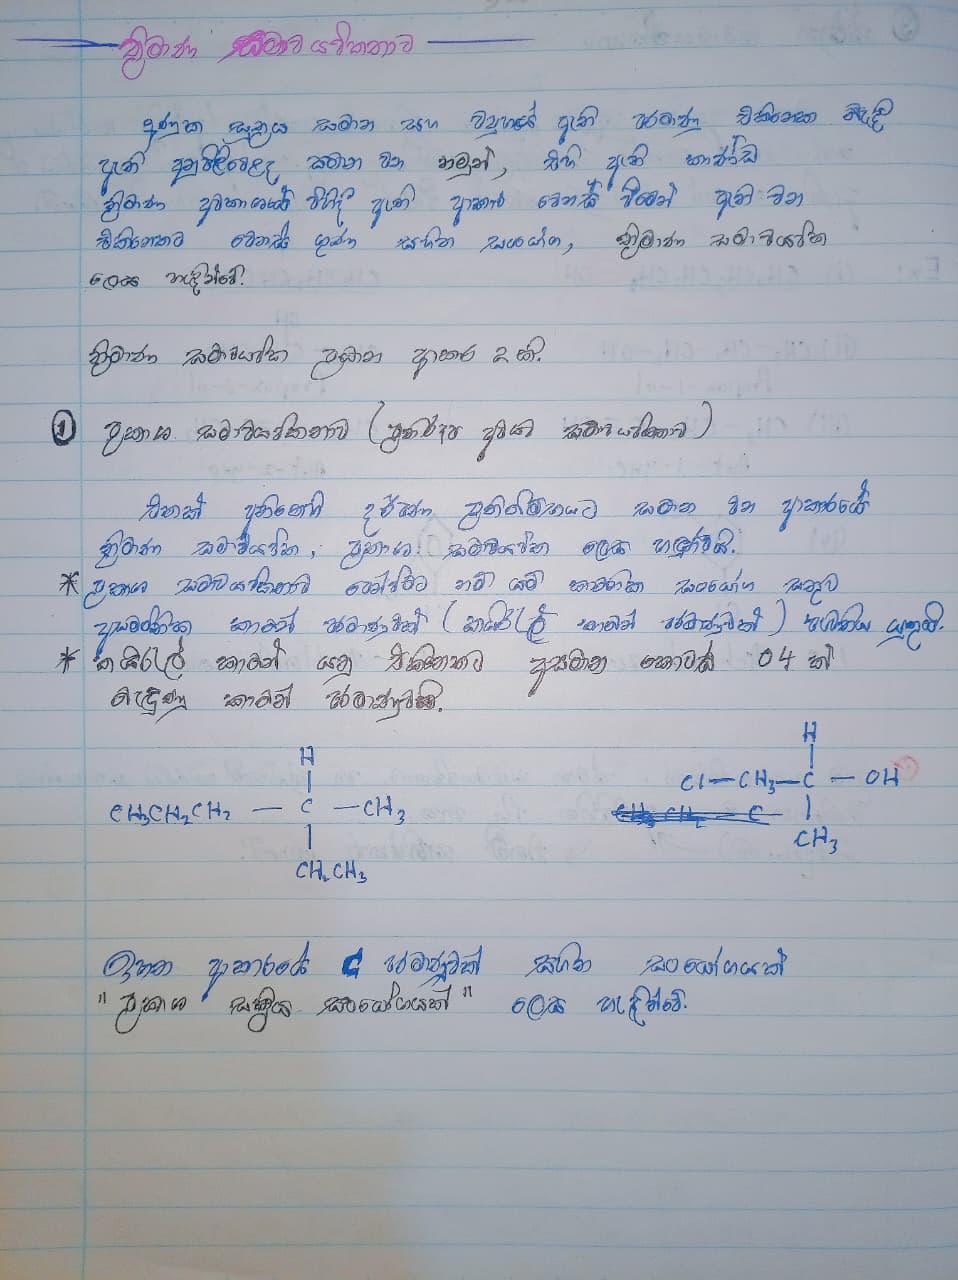 ත්‍රිමාණ සමාවයවිකතාව
අණුක සූත්‍රය සමාන සහ ව්‍යුහයේ ඇති පරමාණු එකිනෙක බැඳී
ඇති අනුපිළිවෙළද සමාන වන නමුත්, එහි ඇති කාණ්ඩ
ත්‍රිමාණ අවකාශයේ විහිදී ඇති ආකාර වෙනස් වීමෙන් ඇති වන
එකිනෙකට වෙනස් ගුණ සහිත සංයෝග, ත්‍රිමාණ සමාවයවික
ලෙස හැඳින්වේ.
ත්‍රිමාණ සමාවයවික ප්‍රධාන ආකාර 2 කි.
① ප්‍රකාශ සමාවයවිකතාව (ප්‍රතිරූප අවයව සමාවයවිකතාව)
එකක් අනිකෙහි දර්පණ ප්‍රතිබිම්භයට සමාන වන ආකාරයේ
ත්‍රිමාණ සමාවයවික, ප්‍රකාශ සමාවයවික ලෙස හඳුන්වයි.
* ප්‍රකාශ සමාවයවිකතාව පෙන්වීමට නම් යම් කාබනික සංයෝග සතුව
අසමමිතික කාබන් පරමාණුවක් (කයිරැල් කාබන් පරමාණුවක්) පැවතිය යුතුයි.
* කයිරැල් කාබන් යනු එකිනෙකට අසමාන කොටස් 04 ක්
බැඳුණු කාබන් පරමාණුවකි.
H
H
Cl — CH₃ — C — OH
CH₃CH₂CH₂ — C — CH₃
CH₃
CH₂CH₃
ඉහත ආකාරයේ C පරමාණුවක් සහිත සංයෝගයක්
"ප්‍රකාශ සක්‍රීය සංයෝගයක්" ලෙස හැඳින්වේ.